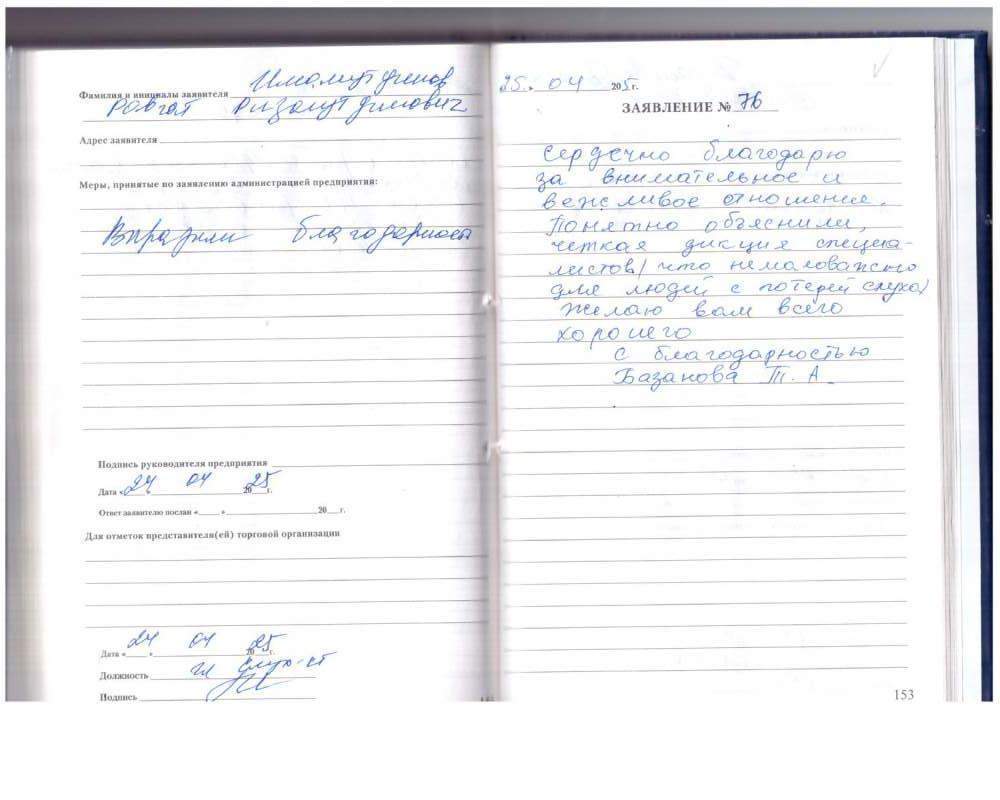 Фамилия и инициалы заявителя
Ризамутдинович
Адрес заявителя
Меры, принятые по заявлению администрацией предприятия:
Выразили благодарность
Подпись руководителя предприятия
Дата « 24 04 2025 г.
Ответ заявителю послан «____» ____ 20__г.
Для отметок представителя(ей) торговой организации
Дата « 24 » 04 2025 г.
Должность гл
Подпись
25. 04 2025г.
ЗАЯВЛЕНИЕ № 76
Сердечно благодарю
за внимательное и
вежливое отношение.
Понятно объяснили,
четкая дикция специа-
листов/ что немаловажно
для людей с потерей слуха/
Желаю вам всего
хорошего
С благодарностью
Базанова Т. А.
153